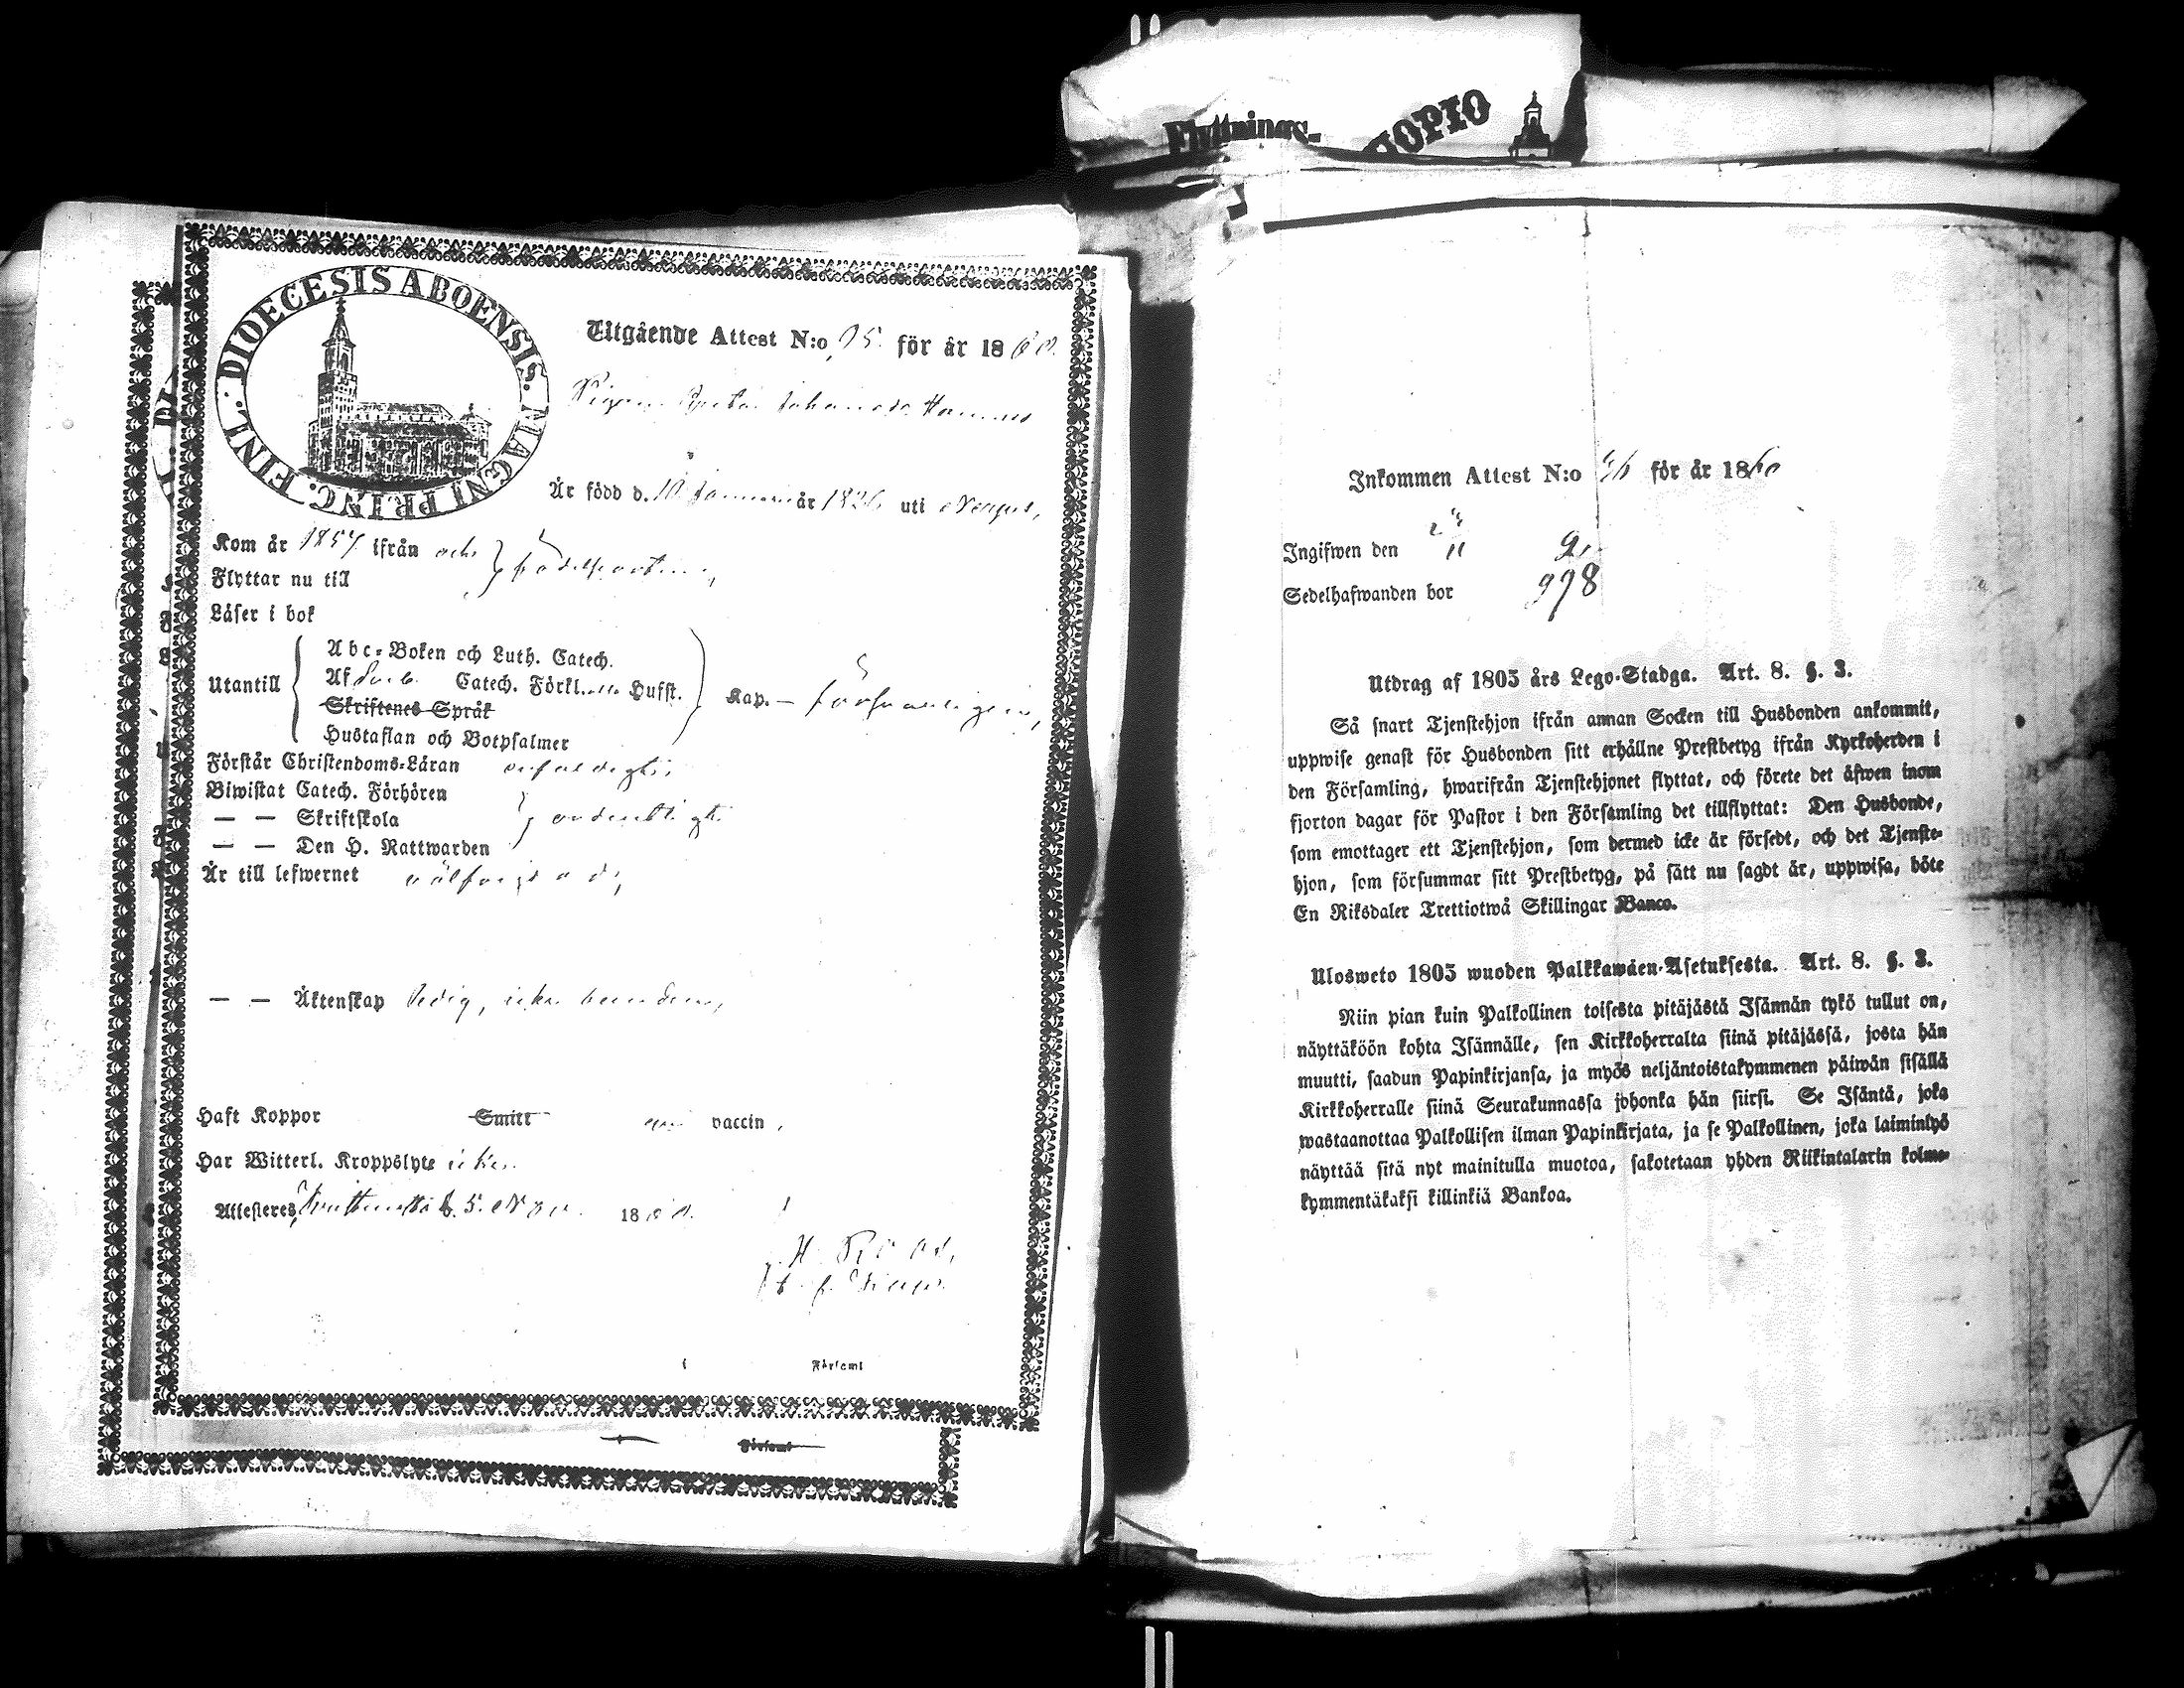 DIOECESIS ABOENSIS. MAGNI PRINC. FINL.:
Utgående Attest N:o 95. för år 1860.
Pigan Greta Johansdr Hannus
Är född d. 10 Januari år 1826 uti Nagu,
Kom år 1857 ifrån och
Flyttar nu till } födelseorten,
Läser i bok
Abc-Boken och Luth. Catech.
Utantill Af Catech. Förkl. Husst. Kap. — försvarligen,
Skriftenes Språk
Hustaflan och Botpsalmer
Förstår Christendoms-Läran enfaldigt,
Biwistat Catech. Förhören
— — Skriftskola } ordentligt
— — Den H. Nattwarden
Är till lefwernet välfrejdad,
— — Äktenskap ledig, icke bunden,
Haft Koppor Smitt vaccin,
Har Witterl. Kroppslyte icke.
Attesteras, d. 5. Nov. 1860.
Församl
Församl
Flyttnings-
UOPIO
Inkommen Attest N:o för år 1860
Ingifwen den 11
Sedelhafwanden bor 998
Utdrag af 1805 års Lego-Stadga. Art. 8. §. 3.
Så snart Tjenstehjon ifrån annan Socken till Husbonden ankommit,
uppwise genast för Husbonden sitt erhållne Prestbetyg ifrån Kyrkoherden i
den Församling, hwarifrån Tjenstehjonet flyttat, och förete det äfwen inom
fjorton dagar för Pastor i den Församling det tillflyttat: Den Husbonde,
som emottager ett Tjenstehjon, som dermed icke är försedt, och det Tjenste-
hjon, som försummar sitt Prestbetyg, på sätt nu sagdt är, uppwisa, böte
En Riksdaler Trettiotwå Skillingar Banco.
Ulosweto 1805 wuoden Palkkawäen-Asetuksesta. Art. 8. §. 3.
Niin pian kuin Palkollinen toisesta pitäjästä Isännän tykö tullut on,
näyttäköön kohta Isännälle, sen Kirkkoherralta siinä pitäjässä, josta hän
muutti, saadun Papinkirjansa, ja myös neljäntoistakymmenen päiwän sisällä
Kirkkoherralle siinä Seurakunnassa johonka hän siirsi. Se Isäntä, joka
wastaanottaa Palkollisen ilman Papinkirjata, ja se Palkollinen, joka laiminlyö
näyttää sitä nyt mainitulla muotoa, sakotetaan yhden Riikintalarin kolme-
kymmentäkaksi killinkiä Bankoa.